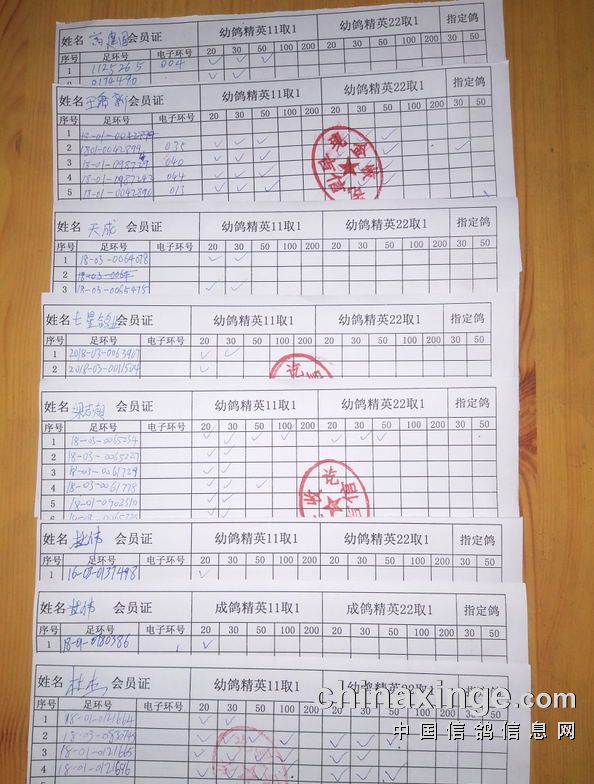 姓名 会员证 幼鸽精英11取1 幼鸽精英22取1 指定鸽
序号 足环号 电子环号 20 30 50 100 200 20 30 50 100 200 30 50
1 1125265 004
0174490
姓名 会员证 幼鸽精英11取1 幼鸽精英22取1 指定鸽
序号 足环号 电子环号 20 30 50 100 200 20 30 50 100 200 30 50
1
2 1801-0042899 035
3 040
4 044
5 18-01-0042890 013
姓名 天成 会员证 幼鸽精英11取1 幼鸽精英22取1 指定鸽
序号 足环号 电子环号 20 30 50 100 200 20 30 50 100 200 30 50
1 18-03-0064078
2
3 18-03-0065475
姓名 七星 会员证 幼鸽精英11取1 幼鸽精英22取1 指定鸽
序号 足环号 电子环号 20 30 50 100 200 20 30 50 100 200 30 50
1 2018-03-0063967
2 2018-03-0091504
姓名 会员证 幼鸽精英11取1 幼鸽精英22取1 指定鸽
序号 足环号 电子环号 20 30 50 100 200 20 30 50 100 200 30 50
1 18-03-0065234
2 18-03-0065227
3 18-03-0061729
4 18-03-0061778
5 18-01-0902310
姓名 会员证 幼鸽精英11取1 幼鸽精英22取1 指定鸽
序号 足环号 电子环号 20 30 50 100 200 20 30 50 100 200 30 50
1 16-03-0137498
姓名 会员证 成鸽精英11取1 成鸽精英22取1 指定鸽
序号 足环号 电子环号 20 30 50 100 200 20 30 50 100 200 30 50
1 18-01-0180386
姓名 会员证 成鸽精英11取1
序号 足环号 电子环号 20 30 50 100 200 20 30 50 100 200 30 50
1 18-01-0121664
2
3 18-01-0121665
4 18-01-0121696
chinaxinge.com
中国信鸽信息网